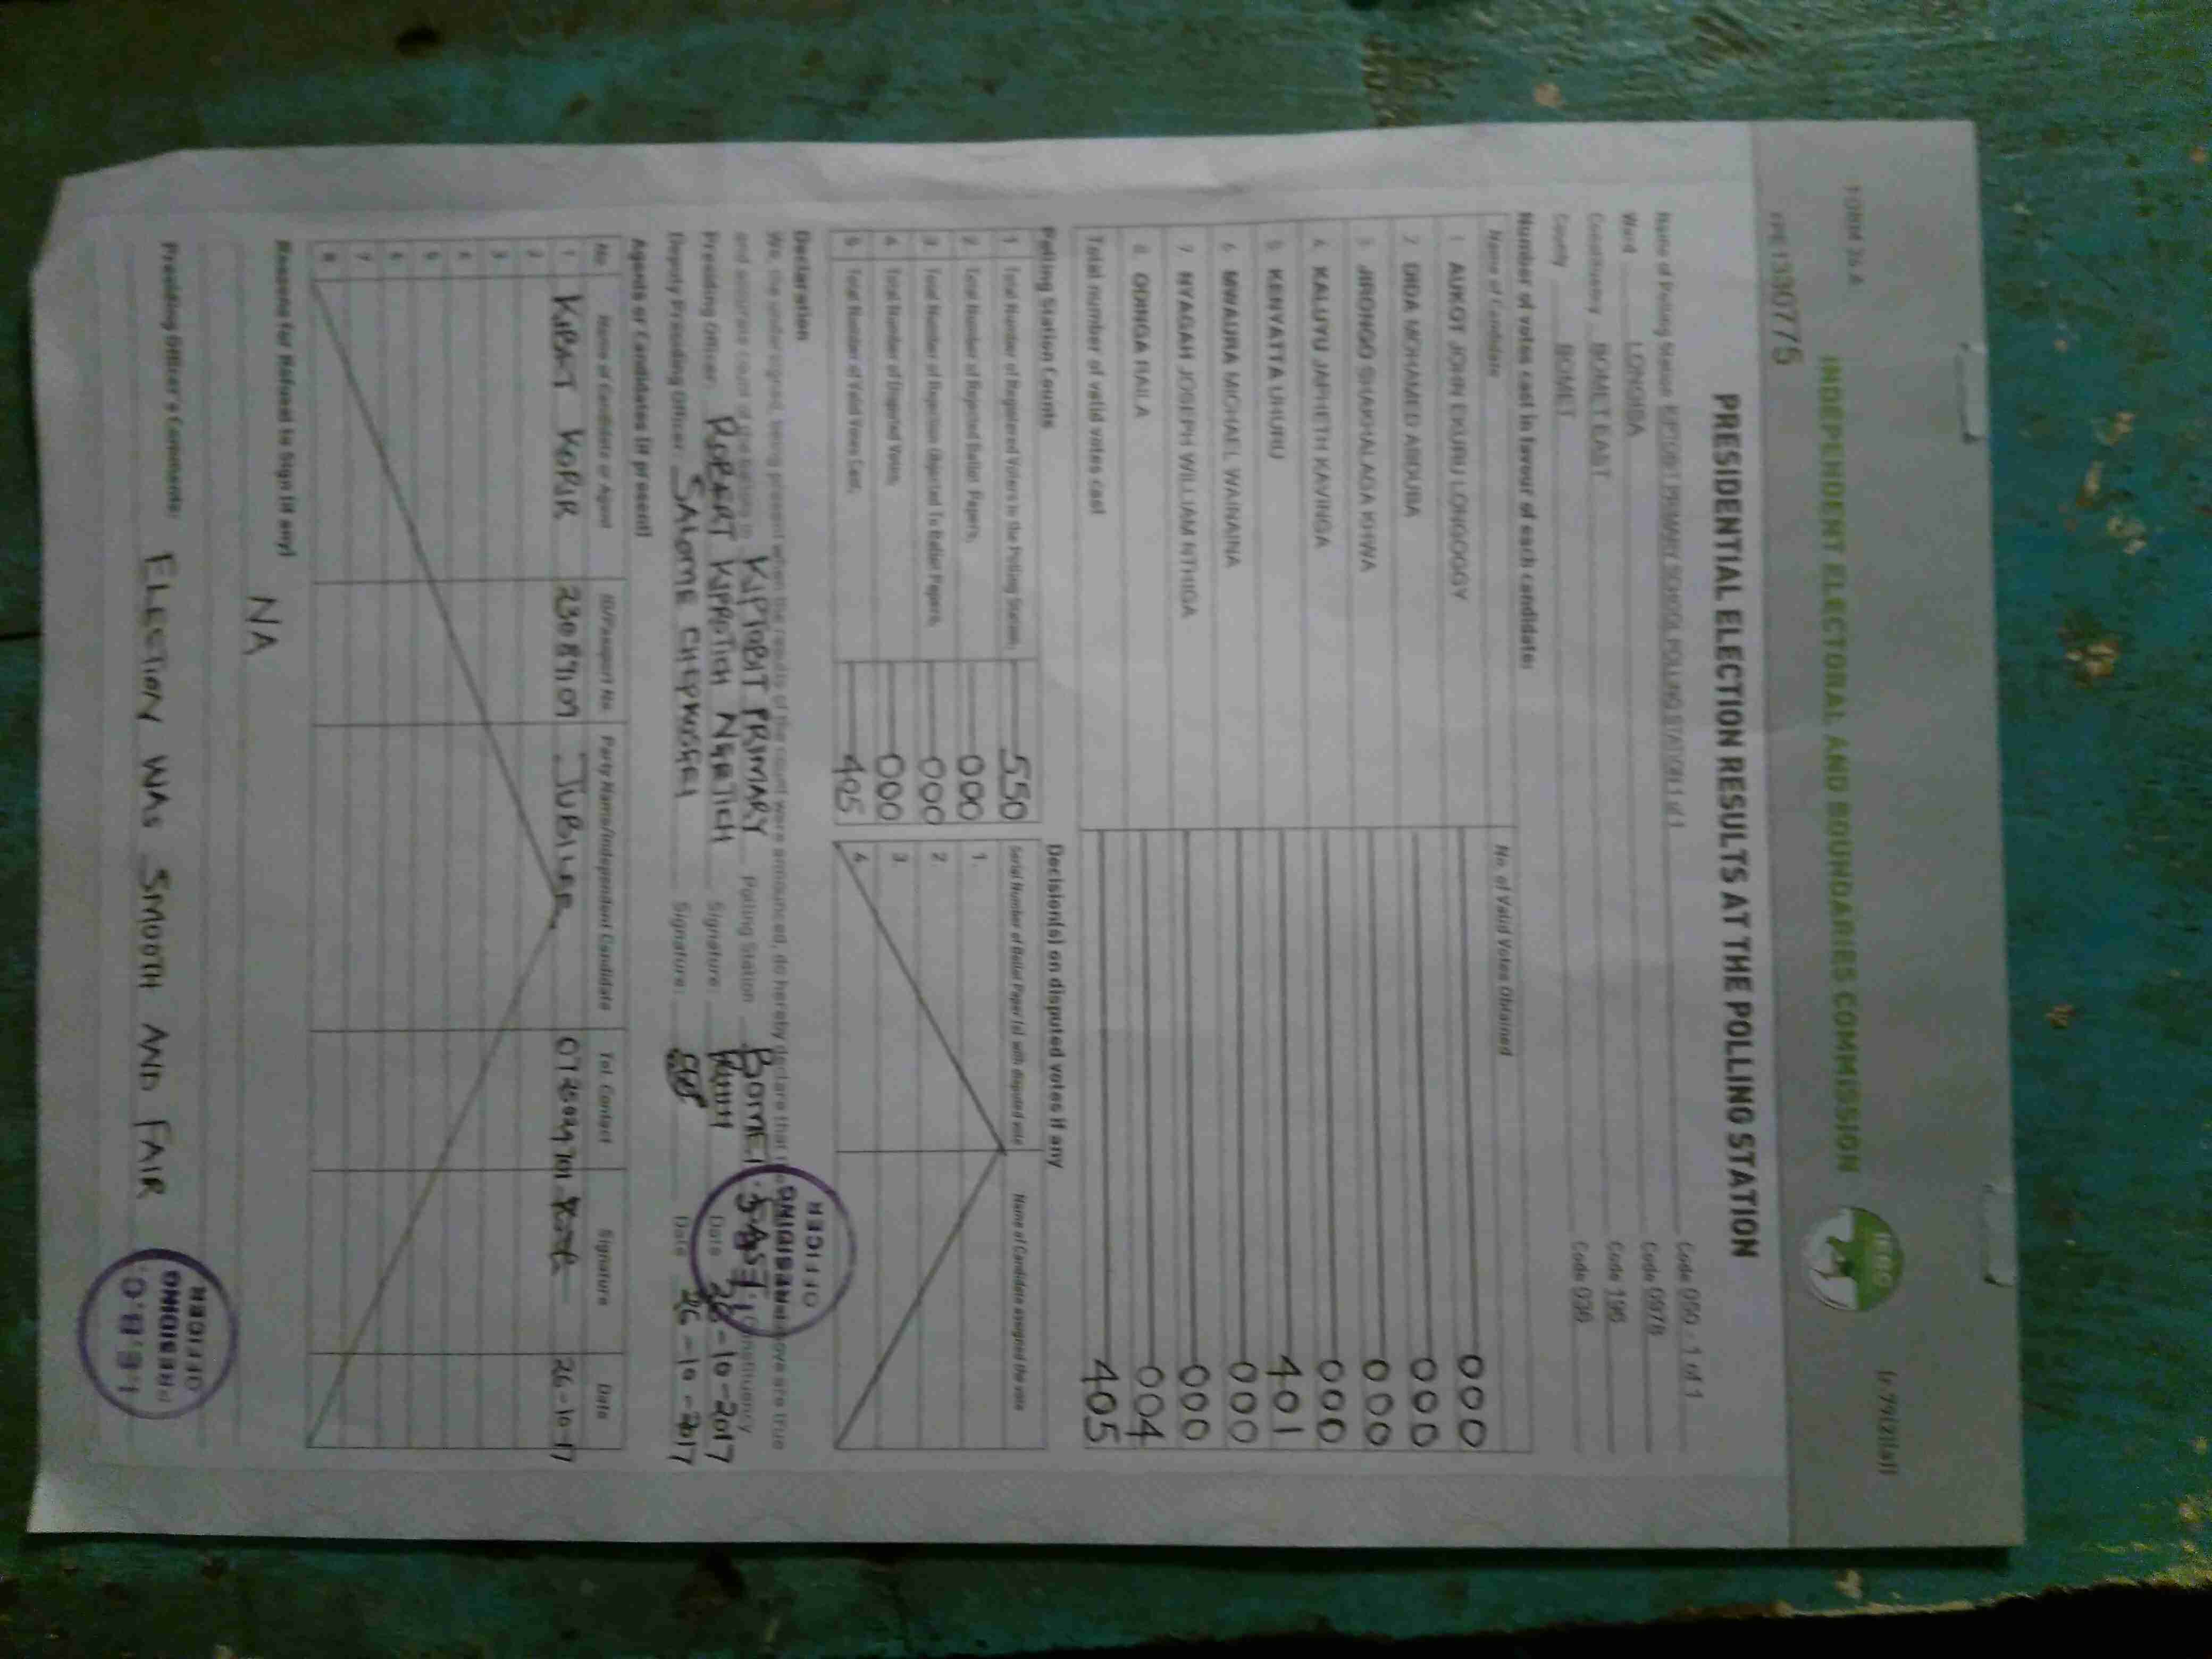 FORM 34A
INDEPENDENT ELECTORAL AND BOUNDARIES COMMISSION
IEBC
1330775
PRESIDENTIAL ELECTION RESULTS AT THE POLLING STATION
Name of Polling Station KIPTOBIT PRIMARY SCHOOL POLLING STATION 1 of 1 Code 050 - 1 of 1
Ward LONGISA Code 0978
Constituency BOMET EAST Code 196
County BOMET Code 036
Number of votes cast in favour of each candidate:
Name of Candidate No. of Valid Votes Obtained
1. AUKOT JOHN EKURU LONGOGGY 000
2. DIDA MOHAMED ABDUBA 000
3. JIRONGO SHAKHALAGA KHWA 000
4. KALUYU JAPHETH KAVINGA 000
5. KENYATTA UHURU 401
6. MWAURA MICHAEL WAINAINA 000
7. NYAGAH JOSEPH WILLIAM NTHIGA 000
8. ODINGA RAILA 004
Total number of valid votes cast 405
Polling Station Counts
1. Total Number of Registered Voters in the Polling Station; 550
2. Total Number of Rejected Ballot Papers; 000
3. Total Number of Rejection Objected To Ballot Papers; 000
4. Total Number of Disputed Votes; 000
5. Total Number of Valid Votes Cast; 405
Decision(s) on disputed votes if any
Serial Number of Ballot Paper (s) with disputed vote Name of Candidate assigned the vote
1.
2.
3.
4.
Declaration
We, the undersigned, being present when the results of the count were announced, do hereby declare that the above are true
and accurate count of the ballots in KIPTOBIT PRIMARY Polling Station BOMET EAST Constituency
Presiding Officer: ROBERT KIPROTICH NGETICH Signature: Date 26-10-2017
Deputy Presiding Officer: SALOME CHEPKOSGEI Signature: Date 26-10-2017
PRESIDING OFFICER
Agents or Candidates (if present)
No. Name of Candidate or Agent ID/Passport No Party Name/Independent Candidate Tel. Contact Signature Date
1 KIBET KORIR JUBILEE 26-10-17
2
3
4
5
6
7
8
Reasons for Refusal to Sign (if any) NA
Presiding Officer's Comments: ELECTION WAS SMOOTH AND FAIR
PRESIDING OFFICER